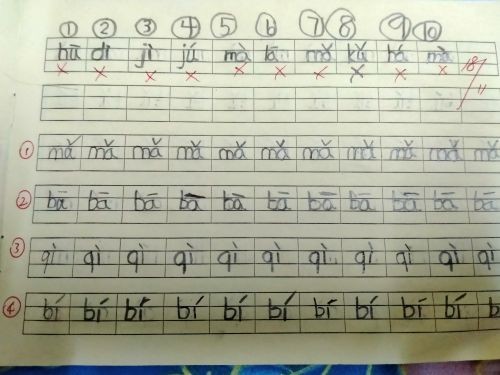 ① ② ③ ④ ⑤ ⑥ ⑦ ⑧ ⑨ ⑩
dì jì jú mà mǒ kǔ há mà 18/11
① mǎ mǎ mǎ mǎ mǎ mǎ mǎ mǎ mǎ mǎ mǎ
② bā bā bā bā bā bā bā bā bā bā bā
③ qì qì qì qì qì qì qì qì qì qì qì
④ bí bí bí bí bí bí bí bí bí bí b